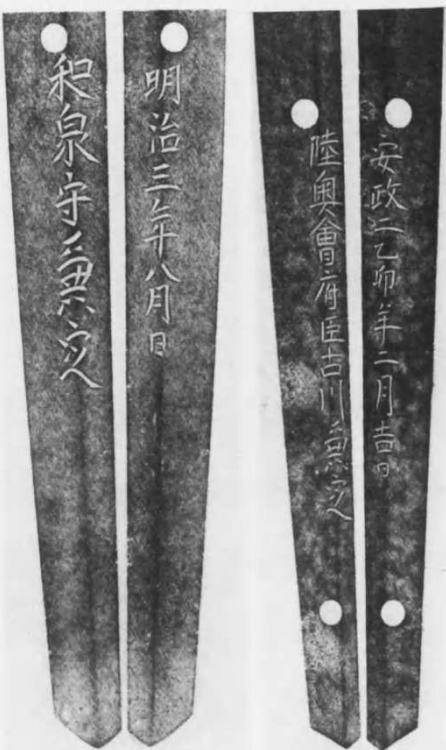 和泉守兼定
明治三年八月日
陸奥會府臣古川兼定
安政二乙卯年二月吉日